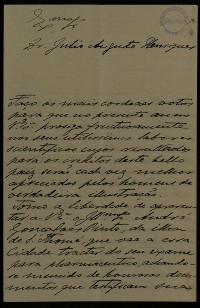 Exmo Sr
Dr. Julio Augusto Henriques
Faço os mais cordeaes votos
para que no presente anno
V. Exa prosiga fructuosamente
nos seus utilissimos labores
scientificos cujos resultados
para os creditos deste bello
paiz serão cada vez melhor
apreciados pelos homens de
verdadeira illustração.
Tomo a liberdade de apresen-
tar a V. Exa o André
Gonçalves Pinto, da Ilha
de S. Thomé, que vae a essa
Cidade tractar do seu exame
para
munido de honrosos docu-
mentos que